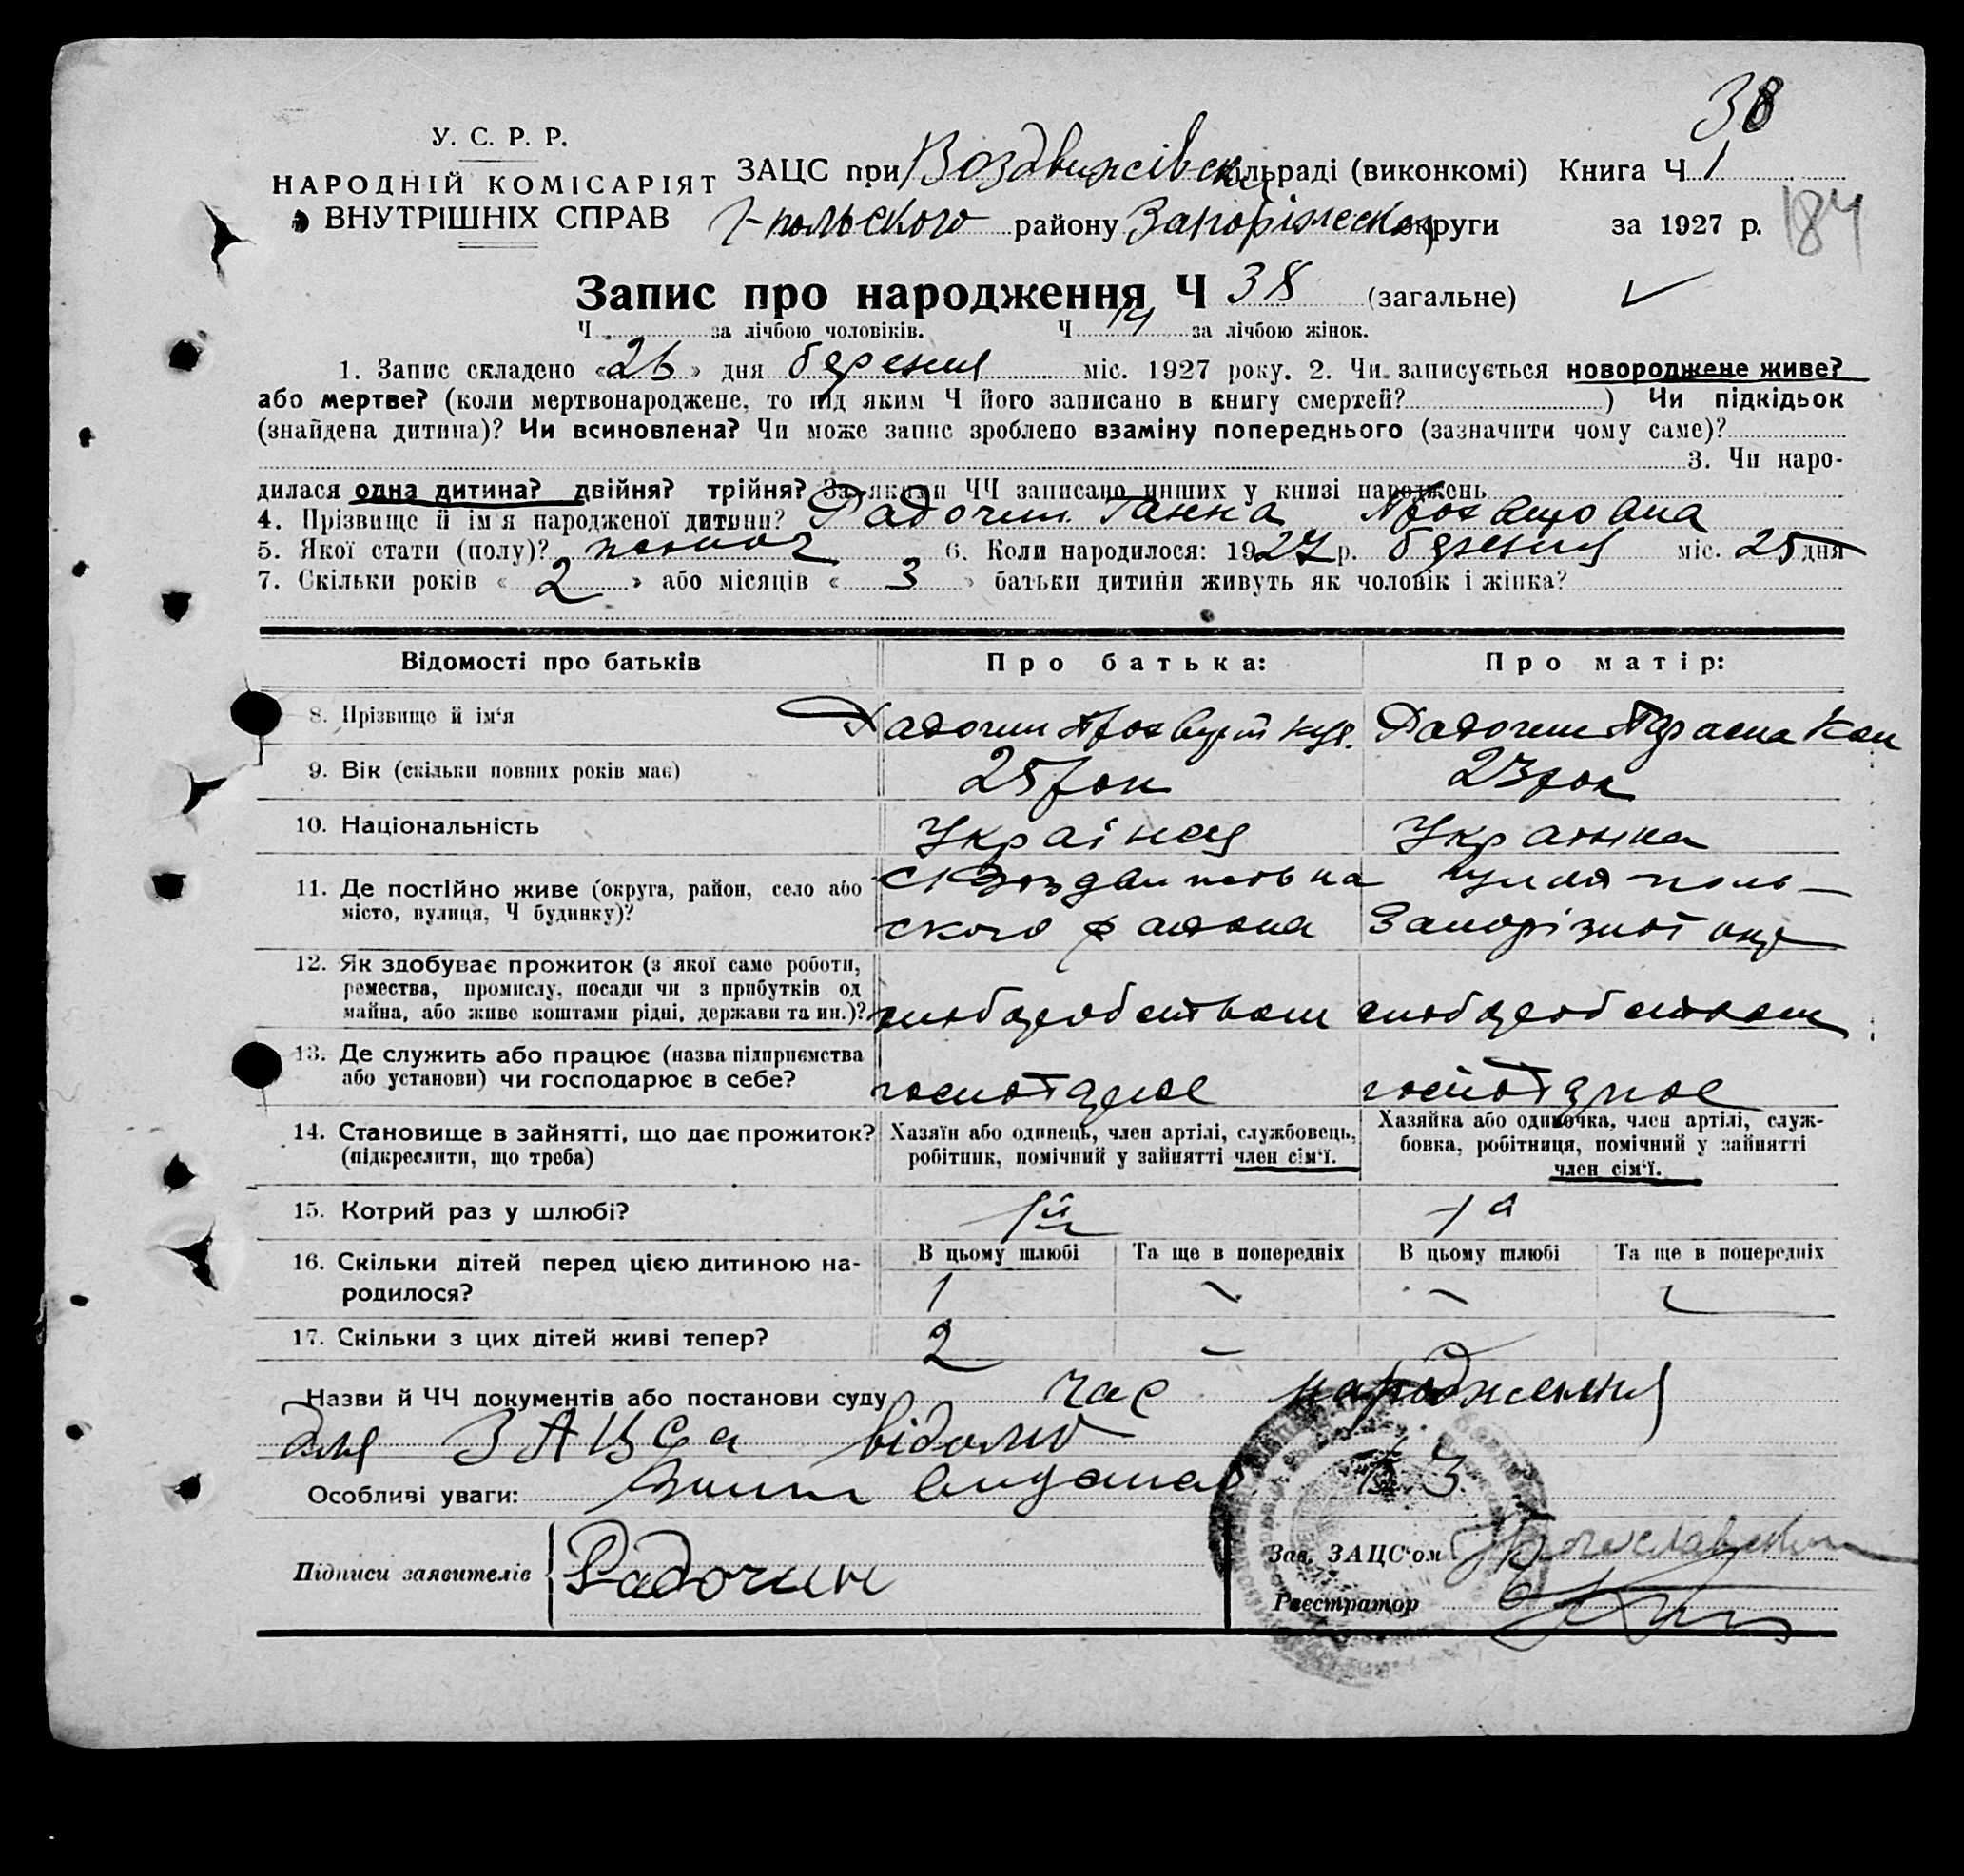 38
У. С. Р. Р.
НАРОДНІЙ КОМІСАРІЯТ
ВНУТРІШНІХ СПРАВ
ЗАЦС при Воздвижівск. сільраді (виконкомі) Книга Ч 1
Г-польского району Запоріжской округи за 1927 р.
184
Запис про народження Ч 38 (загальне)
Ч за лічбою чоловіків. Ч 14 за лічбою жінок.
1. Запис складено «26» дня березня міс. 1927 року. 2. Чи записується новороджене живе?
або мертве? (коли мертвонароджене, то під яким Ч його записано в книгу смертей? ) Чи підкідьок
(знайдена дитина)? Чи всиновлена? Чи може запис зроблено взаміну попереднього (зазначити чому саме)?
3. Чи наро-
дилася одна дитина? двійня? трійня? За якими ЧЧ записано инших у книзі народжень
4. Прізвище й ім'я народженої дитини? Радочин Ганна
5. Якої статі (полу)? 6. Коли народилося: 1927 р. березня міс. 25 дня
7. Скільки років «2» або місяців «3» батьки дитини живуть як чоловік і жінка?
Відомості про батьків Про батька: Про матір:
8. Прізвище й ім'я Радочин Радочин
9. Вік (скільки повних років має) 25 рок 23 рок
10. Національність Українец Українка
11. Де постійно живе (округа, район, село або
місто, вулиця, Ч будинку)?
с Воздвижовка Гуляйполь-
ского района Запорізкої окр
12. Як здобуває прожиток (з якої саме роботи,
ремества, промислу, посади чи з прибутків од
майна, або живе коштами рідні, держави та ин.)?
13. Де служить або працює (назва підприємства
або установи) чи господарює в себе?
14. Становище в зайнятті, що дає прожиток?
(підкреслити, що треба)
Хазяїн або одинець, член артілі, службовець,
робітник, помічний у зайнятті член сім'ї.
Хазяйка або одиночка, член артілі, служ-
бовка, робітниця, помічний у зайнятті
член сім'ї.
15. Котрий раз у шлюбі? 1й 1а
16. Скільки дітей перед цією дитиною на-
родилося?
В цьому шлюбі Та ще в попередніх В цьому шлюбі Та ще в попередніх
1 - - -
17. Скільки з цих дітей живі тепер? 2 -
Назви й ЧЧ документів або постанови суду час народження
для ЗАЦСа відомо
Особливі уваги:
Підписи заявителів Радочин
Зав. ЗАЦС'ом
Реєстратор